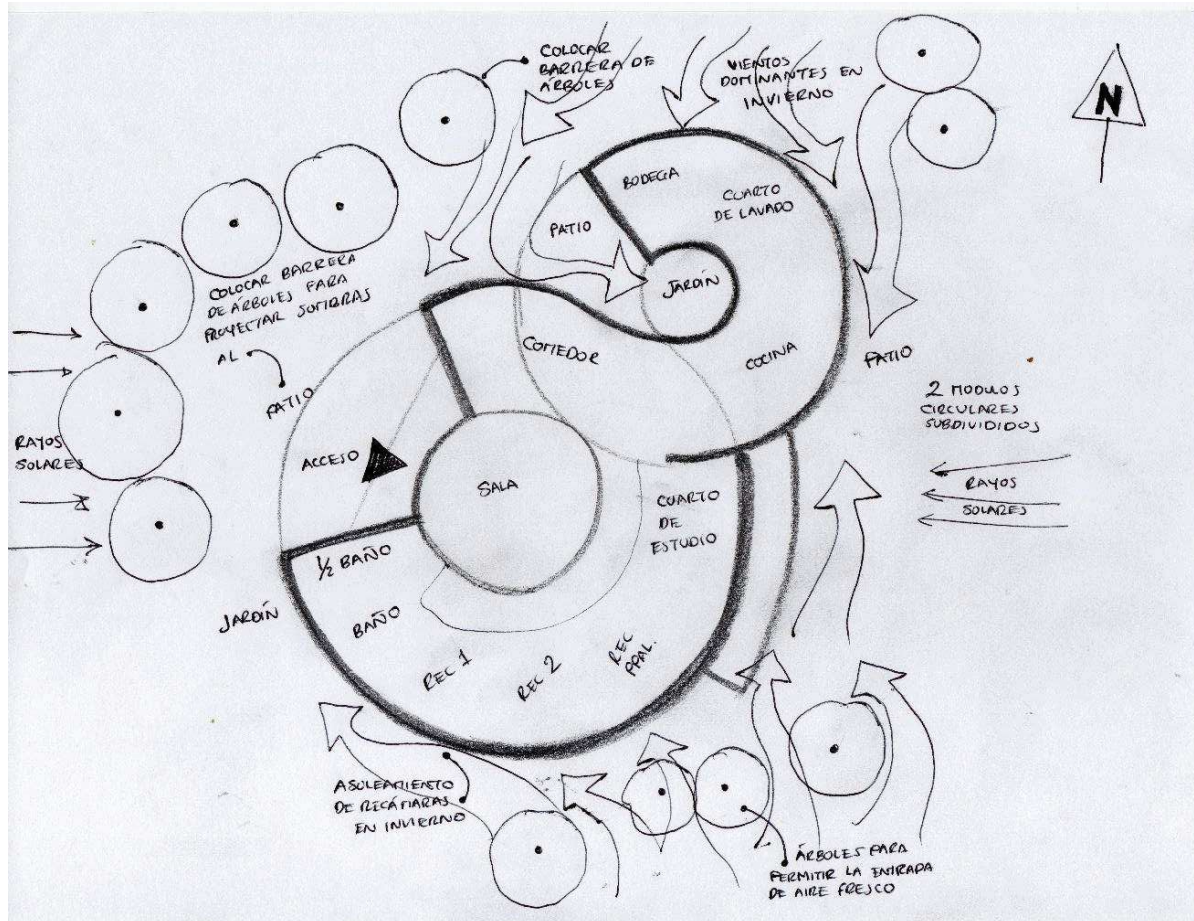 COLOCAR
BARRERA DE
ÁRBOLES
VIENTOS
DOMINANTES EN
INVIERNO
N
BODEGA
CUARTO
DE LAVADO
PATIO
JARDÍN
COLOCAR BARRERA
DE ÁRBOLES PARA
PROYECTAR SOMBRAS
AL
PATIO
COMEDOR
COCINA
PATIO
2 MODULOS
CIRCULARES
SUBDIVIDIDOS
RAYOS
SOLARES
ACCESO
SALA
CUARTO
DE
ESTUDIO
RAYOS
SOLARES
1/2 BAÑO
JARDÍN
BAÑO
REC 1
REC 2
REC
PPAL.
ASOLEAMIENTO
DE RECÁMARAS
EN INVIERNO
ÁRBOLES PARA
PERMITIR LA ENTRADA
DE AIRE FRESCO